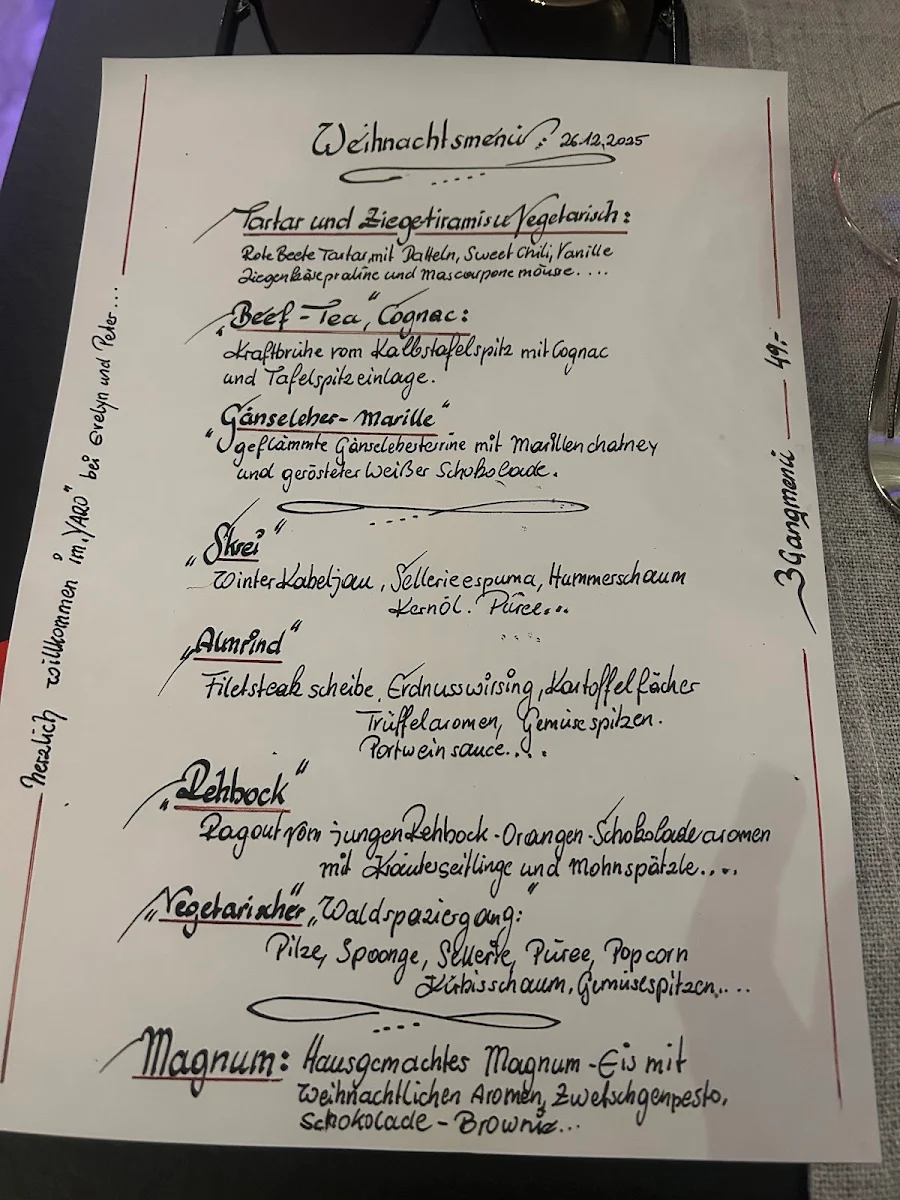 Weihnachtsmenü: 26.12.2025
Tartar und Ziegetiramisu Vegetarisch:
Rote Beete Tartar, mit Datteln, Sweet Chili, Vanille
Ziegenkäsepraline und Mascarpone mousse....
"Beef-Tea", Cognac:
Kraftbrühe vom Kalbstafelspitz mit Cognac
und Tafelspitzeinlage.
"Gänseleber-Marille"
geflämmte Gänseleberterrine mit Marillenchatney
und gerösteter Weißer Schokolade.
"Skrei"
Winterkabeljau, Sellerieespuma, Hummerschaum
Kernöl. Püree...
"Almrind"
Filetsteak scheibe, Erdnusswirsing, Kartoffelfächer
Trüffelaromen, Gemüsespitzen.
Portweinsauce....
"Rehbock"
Ragout vom jungen Rehbock-Orangen-Schokoladearomen
mit Kräuterseitlinge und Mohnspätzle....
"Vegetarischer" „Waldspaziergang:"
Pilze, Spoonge, Sellerie, Püree, Popcorn
Kürbisschaum, Gemüsespitzen,...
Magnum: Hausgemachtes Magnum-Eis mit
Weihnachtlichen Aromen, Zwetschgenpesto,
Schokolade-Brownie...
Herzlich willkommen im „YARO" bei Evelyn und Peter...
3 Gangmenü 49.-